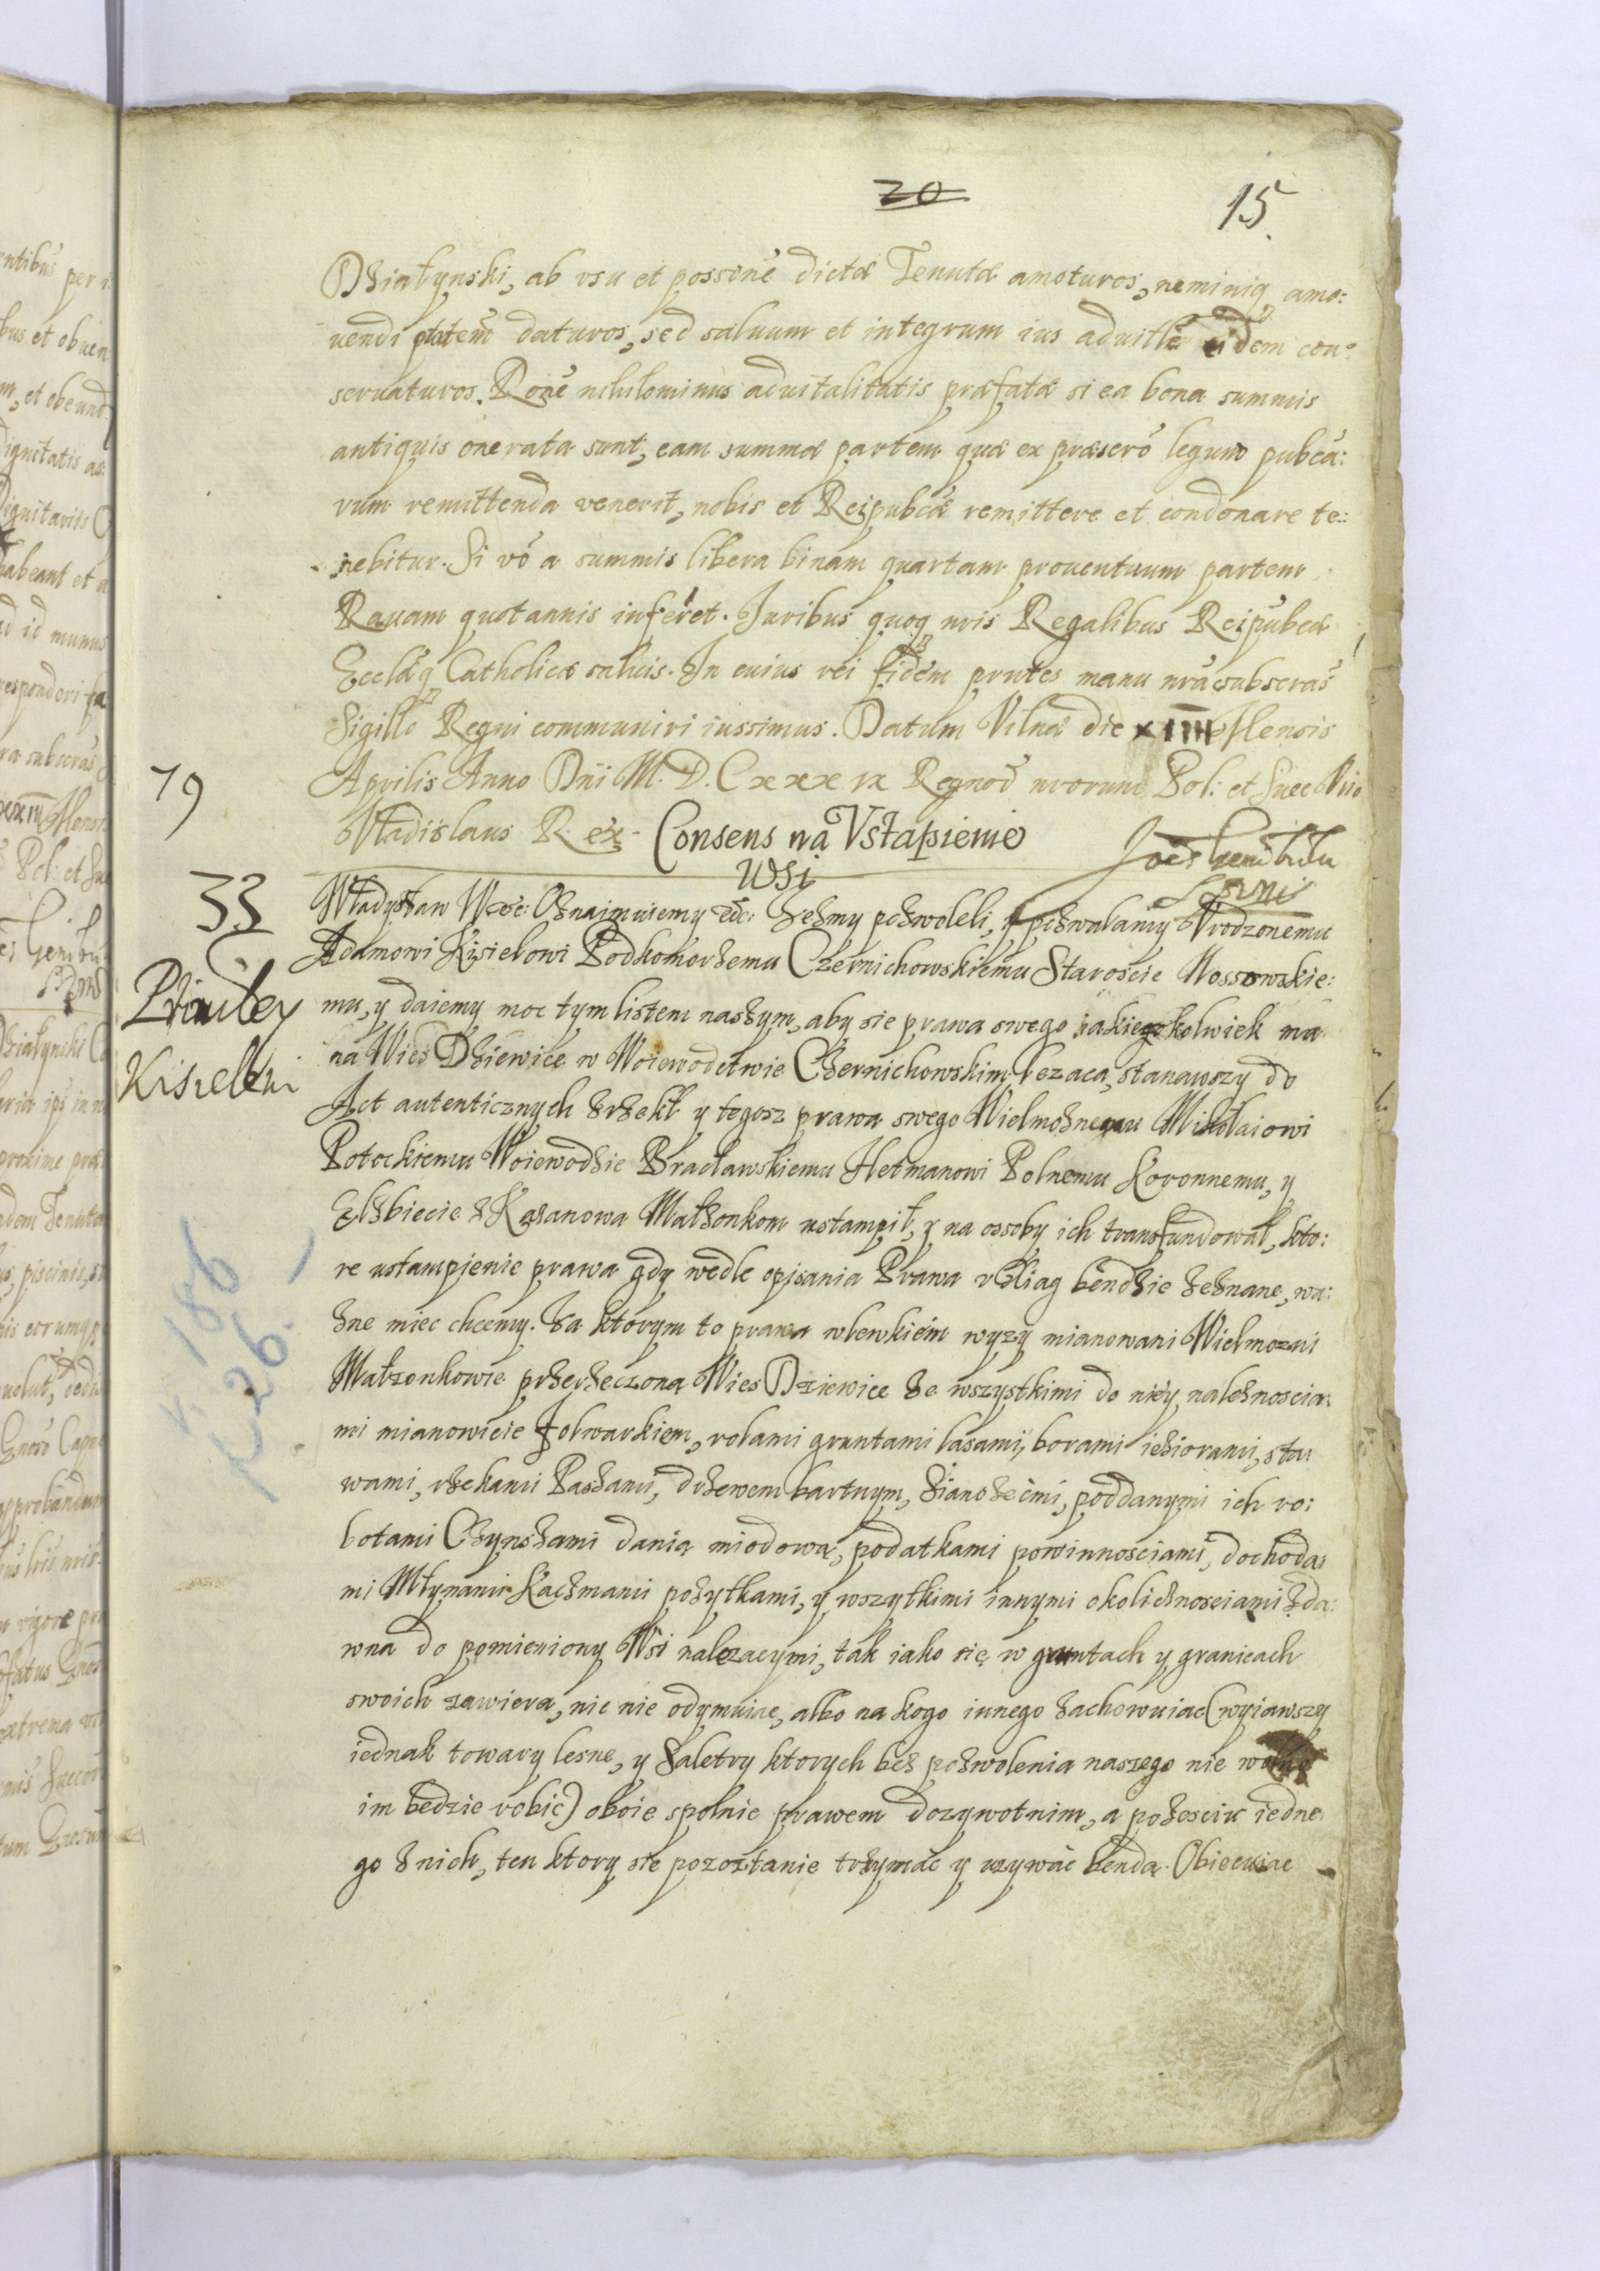 20
15.
Działynski, ab usu et possene dictæ Tenutæ amoturos, neminiq amo:
uendi ptatem daturos, sed saluum et integrum ius aduitle eidem con:
seruaturos. Rone nihilominus aduitalitatis præfatæ si ea bona summis
antiquis onerata sunt, eam summæ partem quæ ex præscro legum pubca:
rum remittenda venerit, nobis et Reipubcæ remittere et condonare te::
nebitur. Si vo a summis libera binam quartam prouentuum partem
Rauam quotannis inferet. Iuribus quoq nris Regalibus Reipubcæ
Ecclæq Catholicæ saluis. In cuius rei fidem prntes manu nra subscras
Sigillo Regni communiri iussimus. Datum Vilnæ die XIIII Mensis
Aprilis Anno Dni M. D. C xxx ix Regnor nrorum Pol: et Suec Vii
Vladislaus Rex
Consens na Vstąpienie
Wsi
79
33
Kisielewi
Władysław etc: Oznajmuiemy etc: Zesmy pozwoleli, y pozwalamy Vrodzonemu
Adamowi Kisielowi Podkomorzemu Czernichowskiemu Staroscie Nossowskie:
mu, y daiemy moc tym listem naszym, aby sie prawa swego iakiegokolwiek ma
na Wieś Dziewice w Woiewodztwie Czernichowskim lezaca, stanawszy do
Act autenticznych zrzekł y tegosz prawa swego Wielmoznemu Mikołaiowi
Potockiemu Woiewodzie Bracławskiemu Hetmanowi Polnemu Koronnemu, y
Elzbiecie z Kazanowa Małzonkom ustampił, y na ossoby ich transfundował, kto:
re ustampienie prawa gdy wedle opisania Prawa v Xiag bendzie zeznane, wa:
zne miec chcemy. Za ktorym to prawa wlewkiem wyzy mianowani Wielmozni
Małzonkowie przerzeczoną Wies Dziewice ze wszystkimi do niey naleznoscia:
mi mianowicie folwarkiem, rolami gruntami lasami, borami ieziorami, sta:
wami, rzekami Paszami, drzewem bartnym, Sianozecmi, poddanymi ich ro:
botami Czynszami danią miodową, podatkami powinnosciami, dochoda:
mi Młynami Kaczmami pozytkami, y wszytkimi innymi okolicznosciami zda:
wna do pomieniony Wsi nalezacymi, tak iako się w gruntach y granicach
swoich zawiera, nic nie odymuiac, albo na kogo innego zachowuiac (wyiawszy
iednak towary lesne, y Saletry ktorych bez pozwolenia naszego nie wolno
im bedzie robic) oboie spolnie prawem dozywotnim, a po zesciu iedne
go z nich, ten ktory sie pozostanie trzymac y uzywac benda. Obiecuiac
186
K 26.